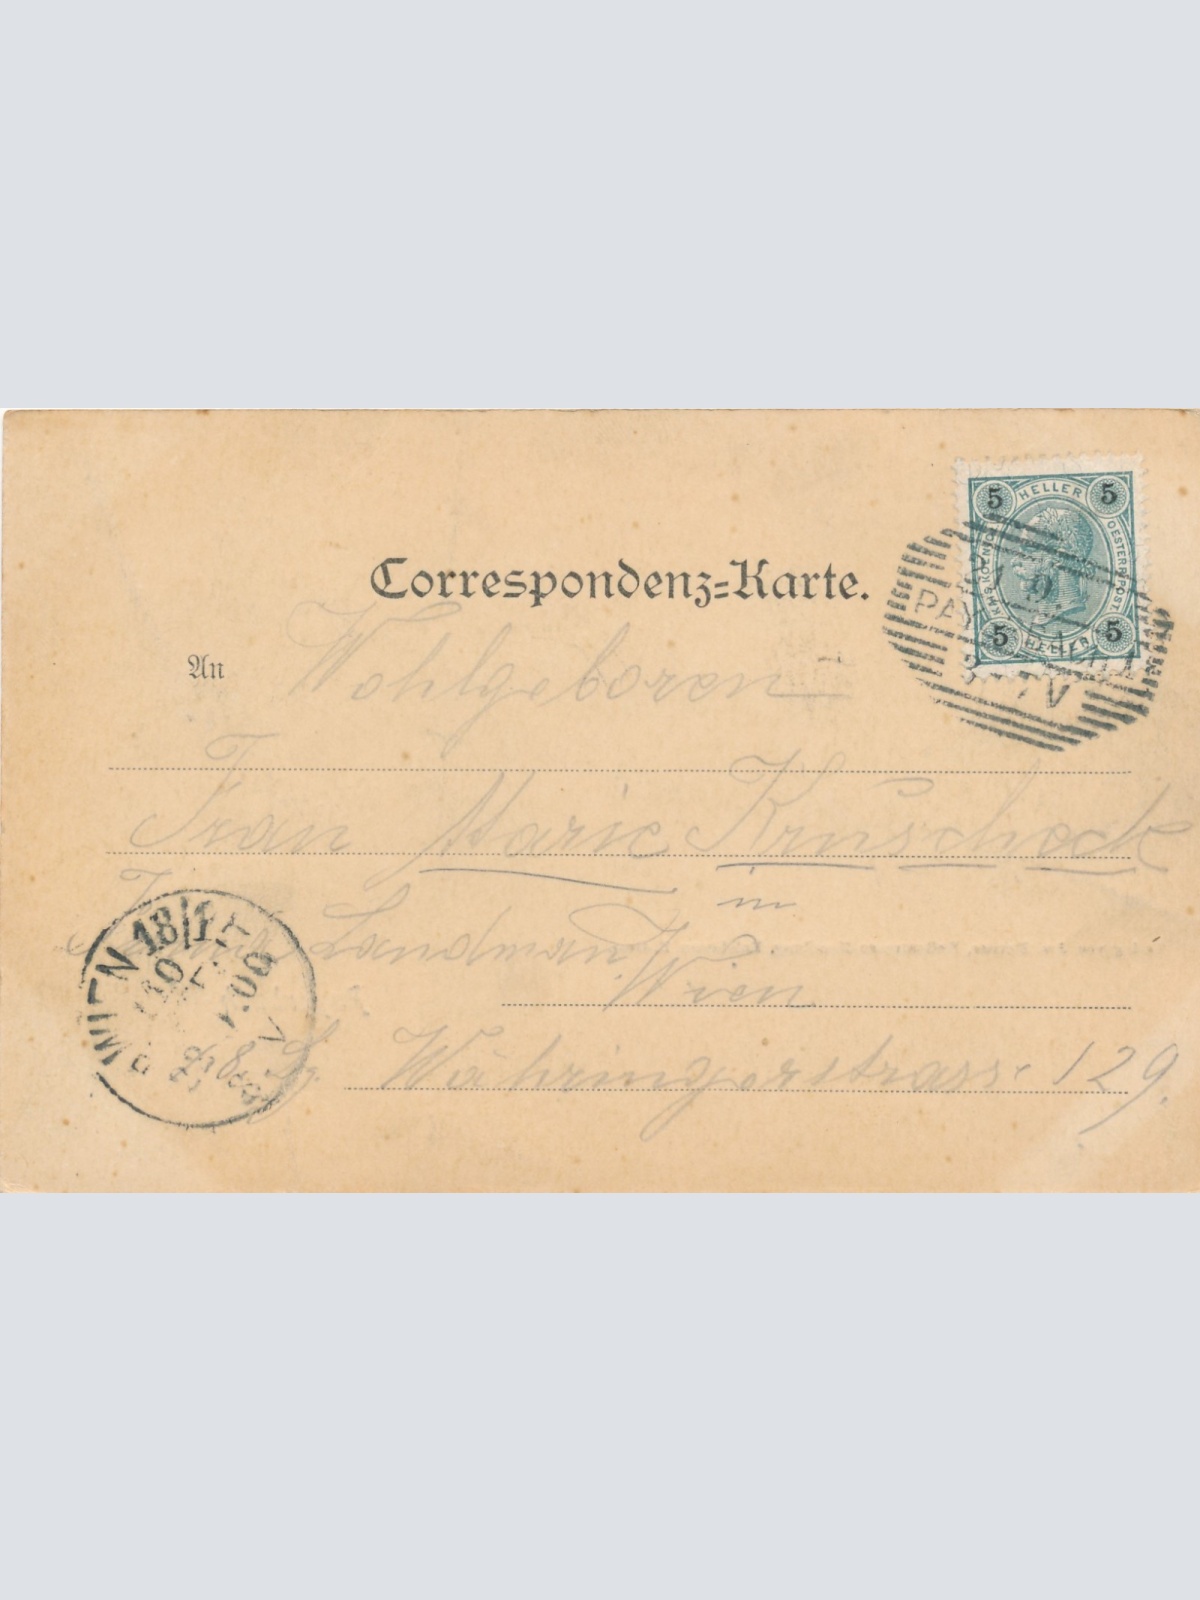 Correspondenz=Karte.
5 HELLER 5
KAIS. KOENIGL. OESTERR. POST
5 HELLER 5
An
Wohlgeboren
Frau Marie Kruscheck
in
Wien
Währingerstrasse 129.
WIEN 18/1